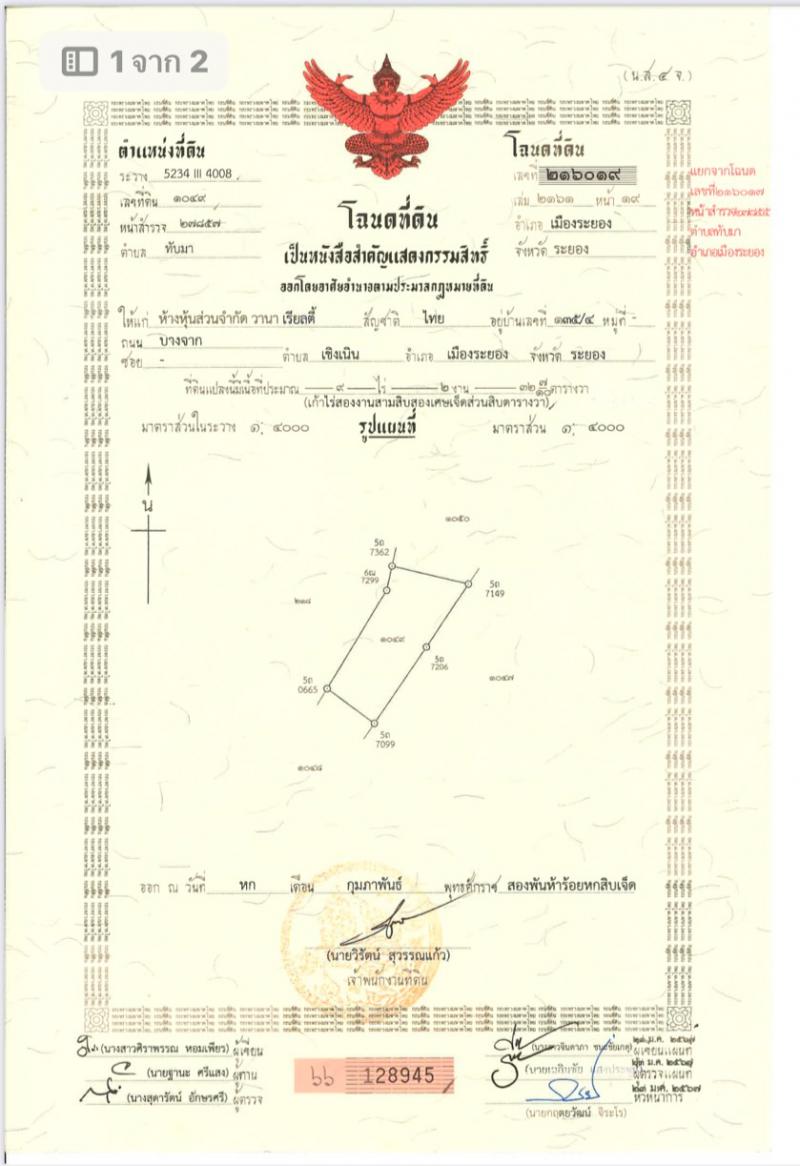 1 จาก 2
(น.ส.๔ จ.)
ตำแหน่งที่ดิน
ระวาง 5234 III 4008
เลขที่ดิน ๑๐๔๙
หน้าสำรวจ ๒๗๘๕๗
ตำบล ทับมา
โฉนดที่ดิน
เลขที่ ๒๑๖๐๑๙
เล่ม ๒๑๖๑ หน้า ๑๙
อำเภอ เมืองระยอง
จังหวัด ระยอง
แยกจากโฉนด
เลขที่๒๑๖๐๑๗
หน้าสำรวจ๒๗๘๕๕
ตำบลทับมา
อำเภอเมืองระยอง
โฉนดที่ดิน
เป็นหนังสือสำคัญแสดงกรรมสิทธิ์
ออกโดยอาศัยอำนาจตามประมวลกฎหมายที่ดิน
ให้แก่ ห้างหุ้นส่วนจำกัด วานา เรียลตี้ สัญชาติ ไทย อยู่บ้านเลขที่ ๑๓๕/๔ หมู่ที่ -
ถนน บางจาก
ซอย - ตำบล เชิงเนิน อำเภอ เมืองระยอง จังหวัด ระยอง
ที่ดินแปลงนี้มีเนื้อที่ประมาณ ๙ ไร่ ๒ งาน ๓๒ ๗/๑๐ ตารางวา
(เก้าไร่สองงานสามสิบสองเศษเจ็ดส่วนสิบตารางวา)
มาตราส่วนในระวาง ๑: ๔๐๐๐ รูปแผนที่ มาตราส่วน ๑: ๔๐๐๐
น
๑๐๕๐
5ถ
7362
6ฌ
7299
5ถ
7149
๒๑๘
๑๐๔๙
5ถ
7206
๑๐๔๗
5ถ
0665
5ถ
7099
๑๐๔๘
ออก ณ วันที่ หก เดือน กุมภาพันธ์ พุทธศักราช สองพันห้าร้อยหกสิบเจ็ด
(นายวิรัตน์ สุวรรณแก้ว)
เจ้าพนักงานที่ดิน
(นางสาวศิราพรรณ หอมเพียร) ผู้เขียน
(นายฐานะ ศรีแสง) ผู้ทาน
(นางสุดารัตน์ อักษรศรี) ผู้ตรวจ
๖๖ 128945
ผู้เขียนแผนที่
๒๓ ม.ค. ๒๕๖๗
ผู้ตรวจแผนที่
๒๓ ม.ค. ๒๕๖๗
หัวหน้าการ
(นายกฤตยวัฒน์ จิระโร)